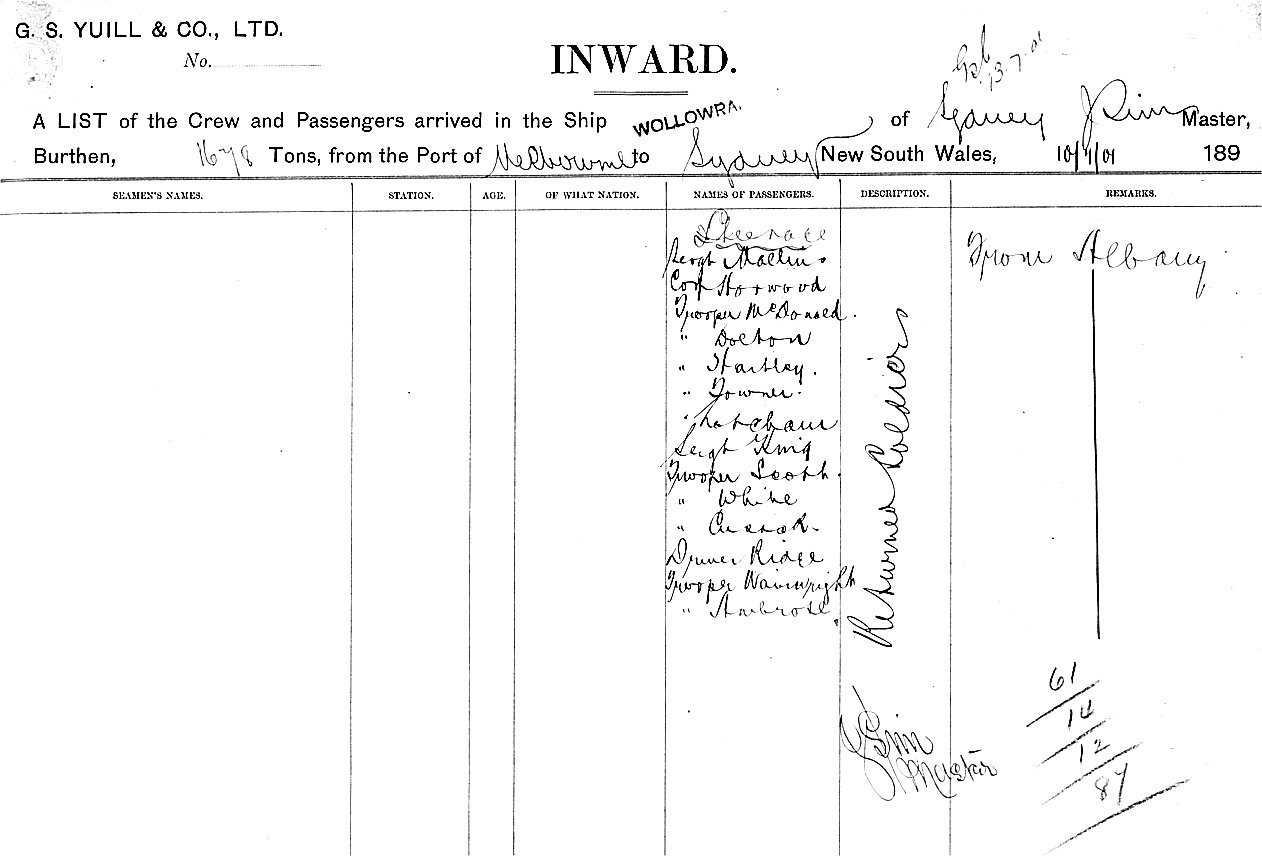 G. S. YUILL & CO., LTD.
No.
INWARD.
13.7.01
A LIST of the Crew and Passengers arrived in the Ship WOLLOWRA. of Sydney J Sim Master,
Burthen, 1678 Tons, from the Port of Melbourne to Sydney New South Wales, 10/7/01 189
SEAMEN'S NAMES. STATION. AGE. OF WHAT NATION. NAMES OF PASSENGERS. DESCRIPTION. REMARKS.
Steerage
Sergt Mallin
Corp Horwood
Trooper McDonald
" Dolton
" Hartley.
" Towner.
"
Sergt King
Trooper Scott
" White
" Cusack
Driver Ridge
Trooper Wainwright
" Ambrose "
Returned Soldiers
From Albany
J Sim
Master
61
14
12
87